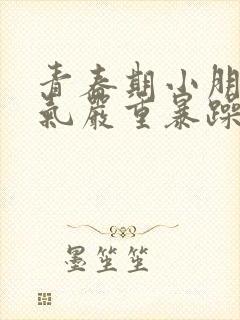 青春期小朋
氣嚴重暴躁
墨笙笙